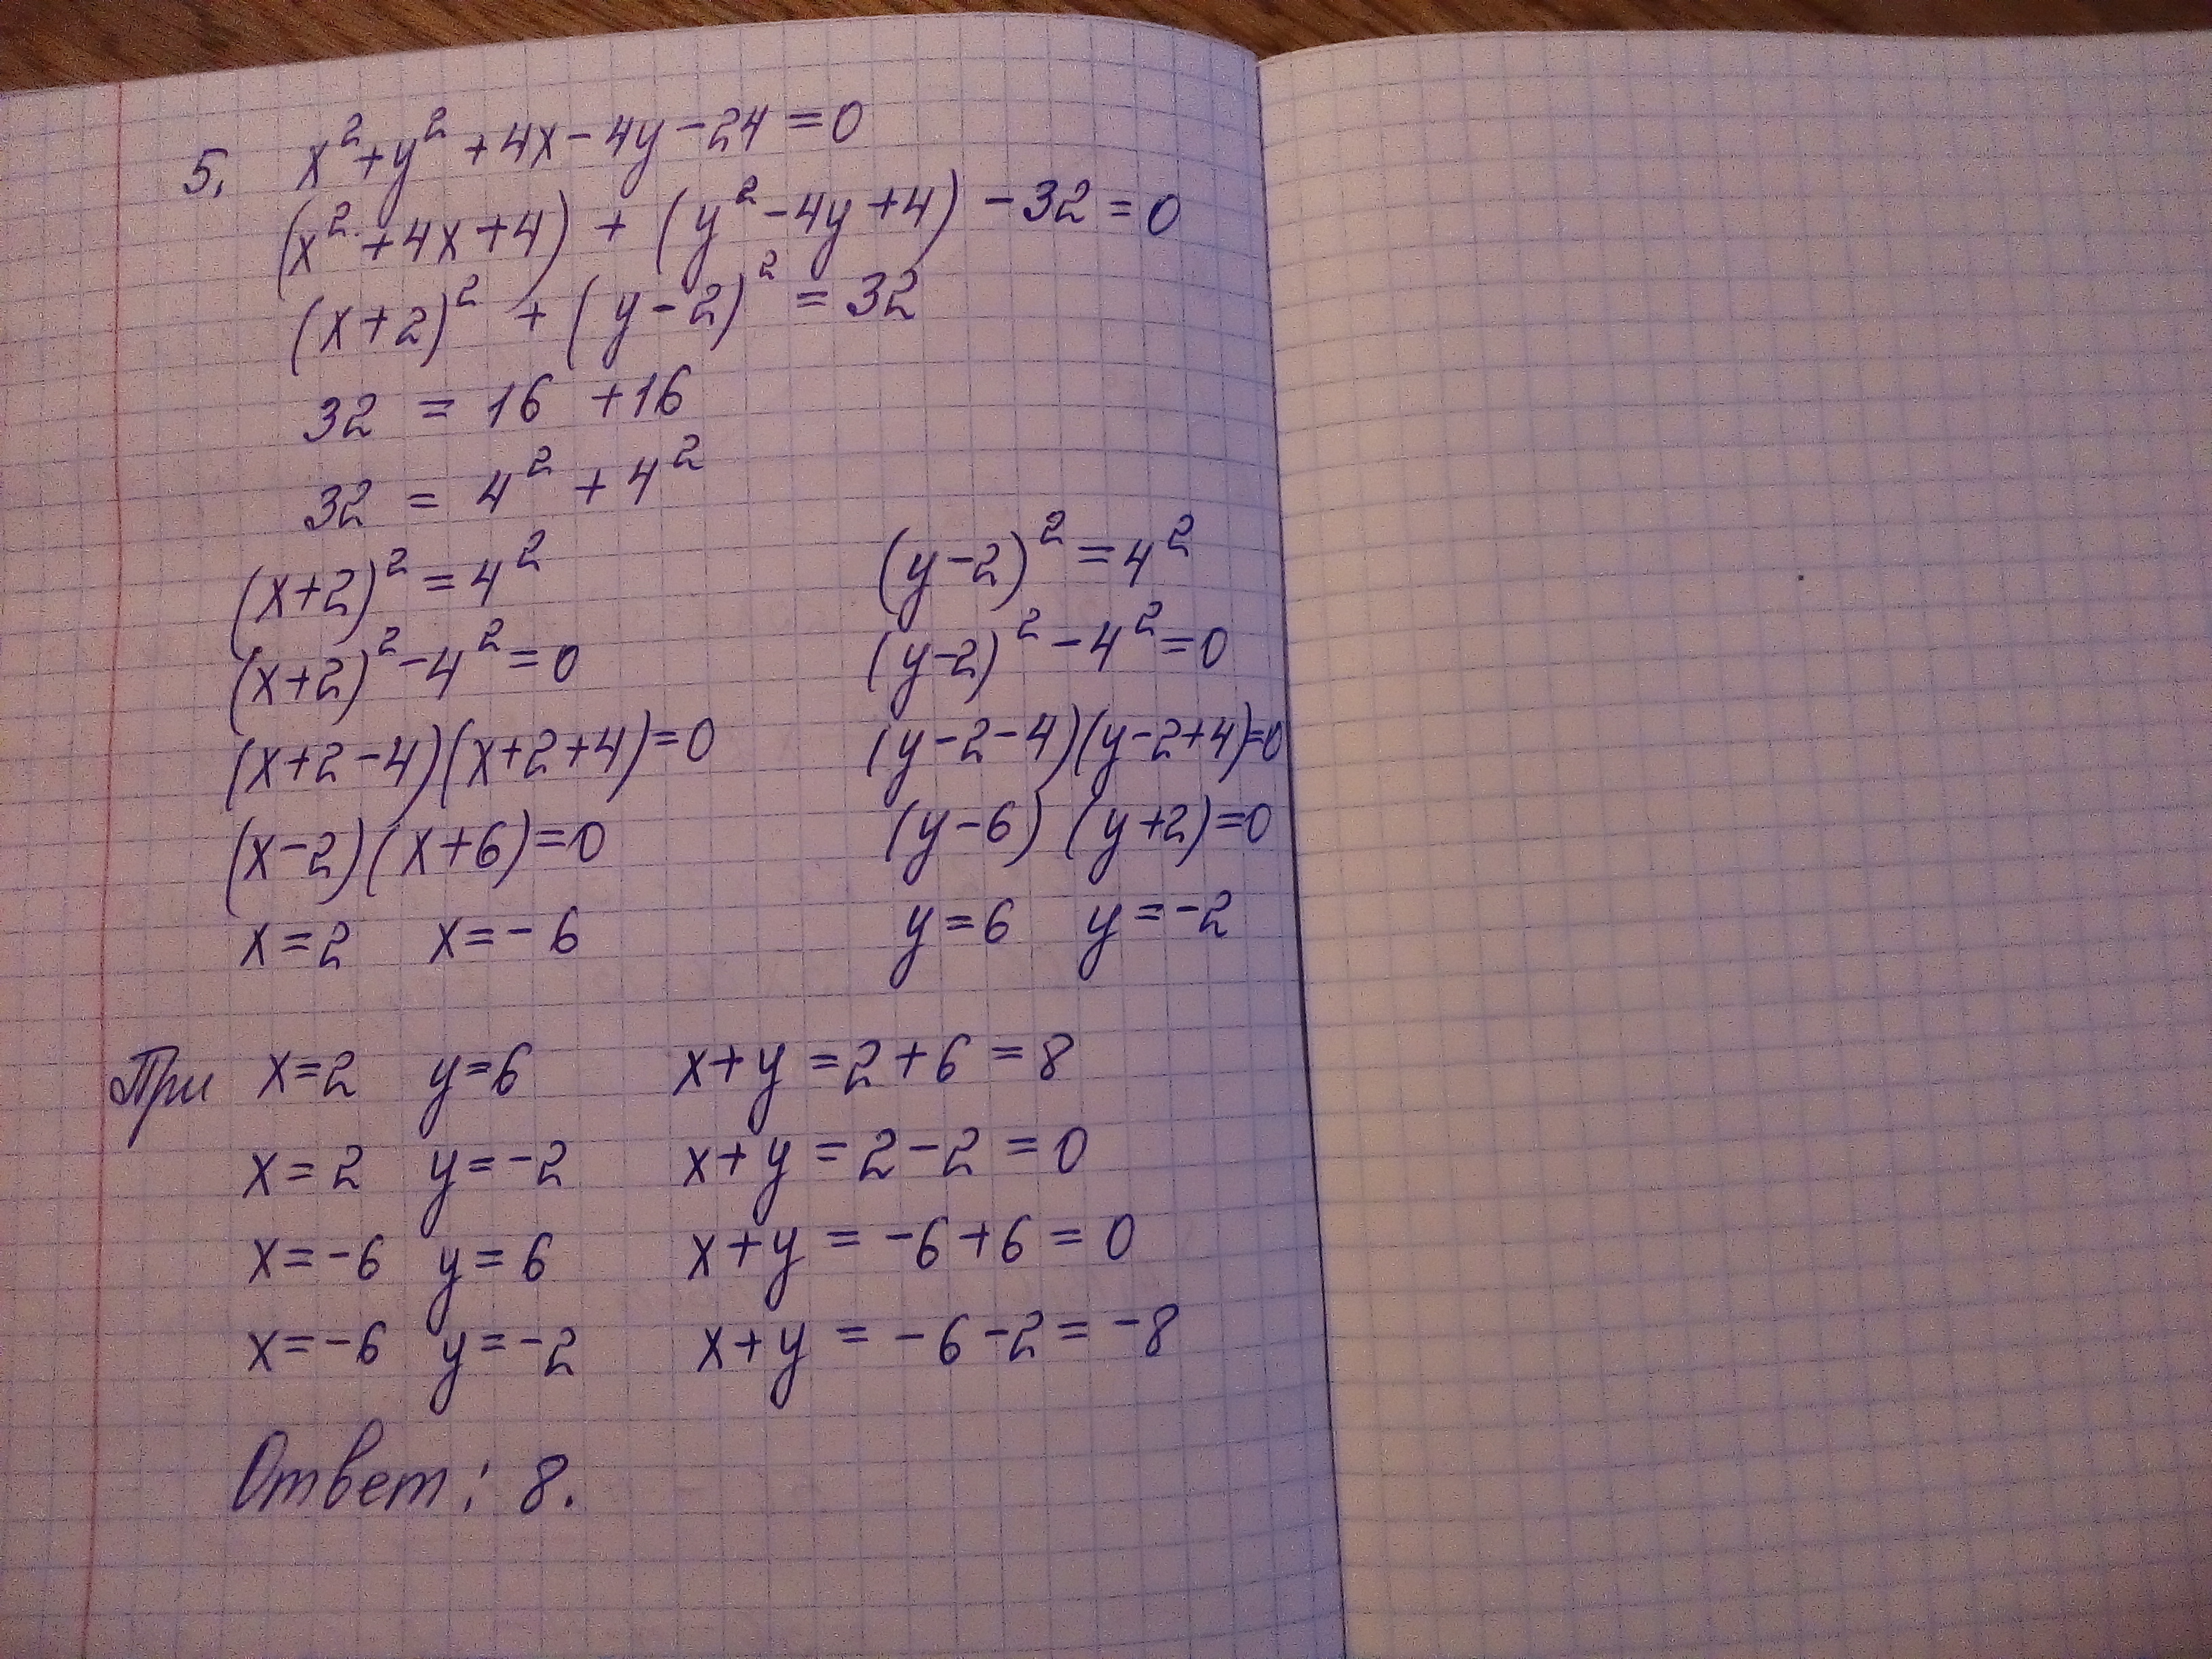 5. x² + y² + 4x - 4y - 24 = 0
(x² + 4x + 4) + (y² - 4y + 4) - 32 = 0
(x + 2)² + (y - 2)² = 32
32 = 16 + 16
32 = 4² + 4²
(x+2)² = 4² (y-2)² = 4²
(x+2)² - 4² = 0 (y-2)² - 4² = 0
(x+2-4)(x+2+4)=0 (y-2-4)(y-2+4)=0
(x-2)(x+6)=0 (y-6)(y+2)=0
x=2 x=-6 y=6 y=-2
При x=2 y=6 x+y=2+6=8
x=2 y=-2 x+y=2-2=0
x=-6 y=6 x+y=-6+6=0
x=-6 y=-2 x+y=-6-2=-8
Ответ: 8.